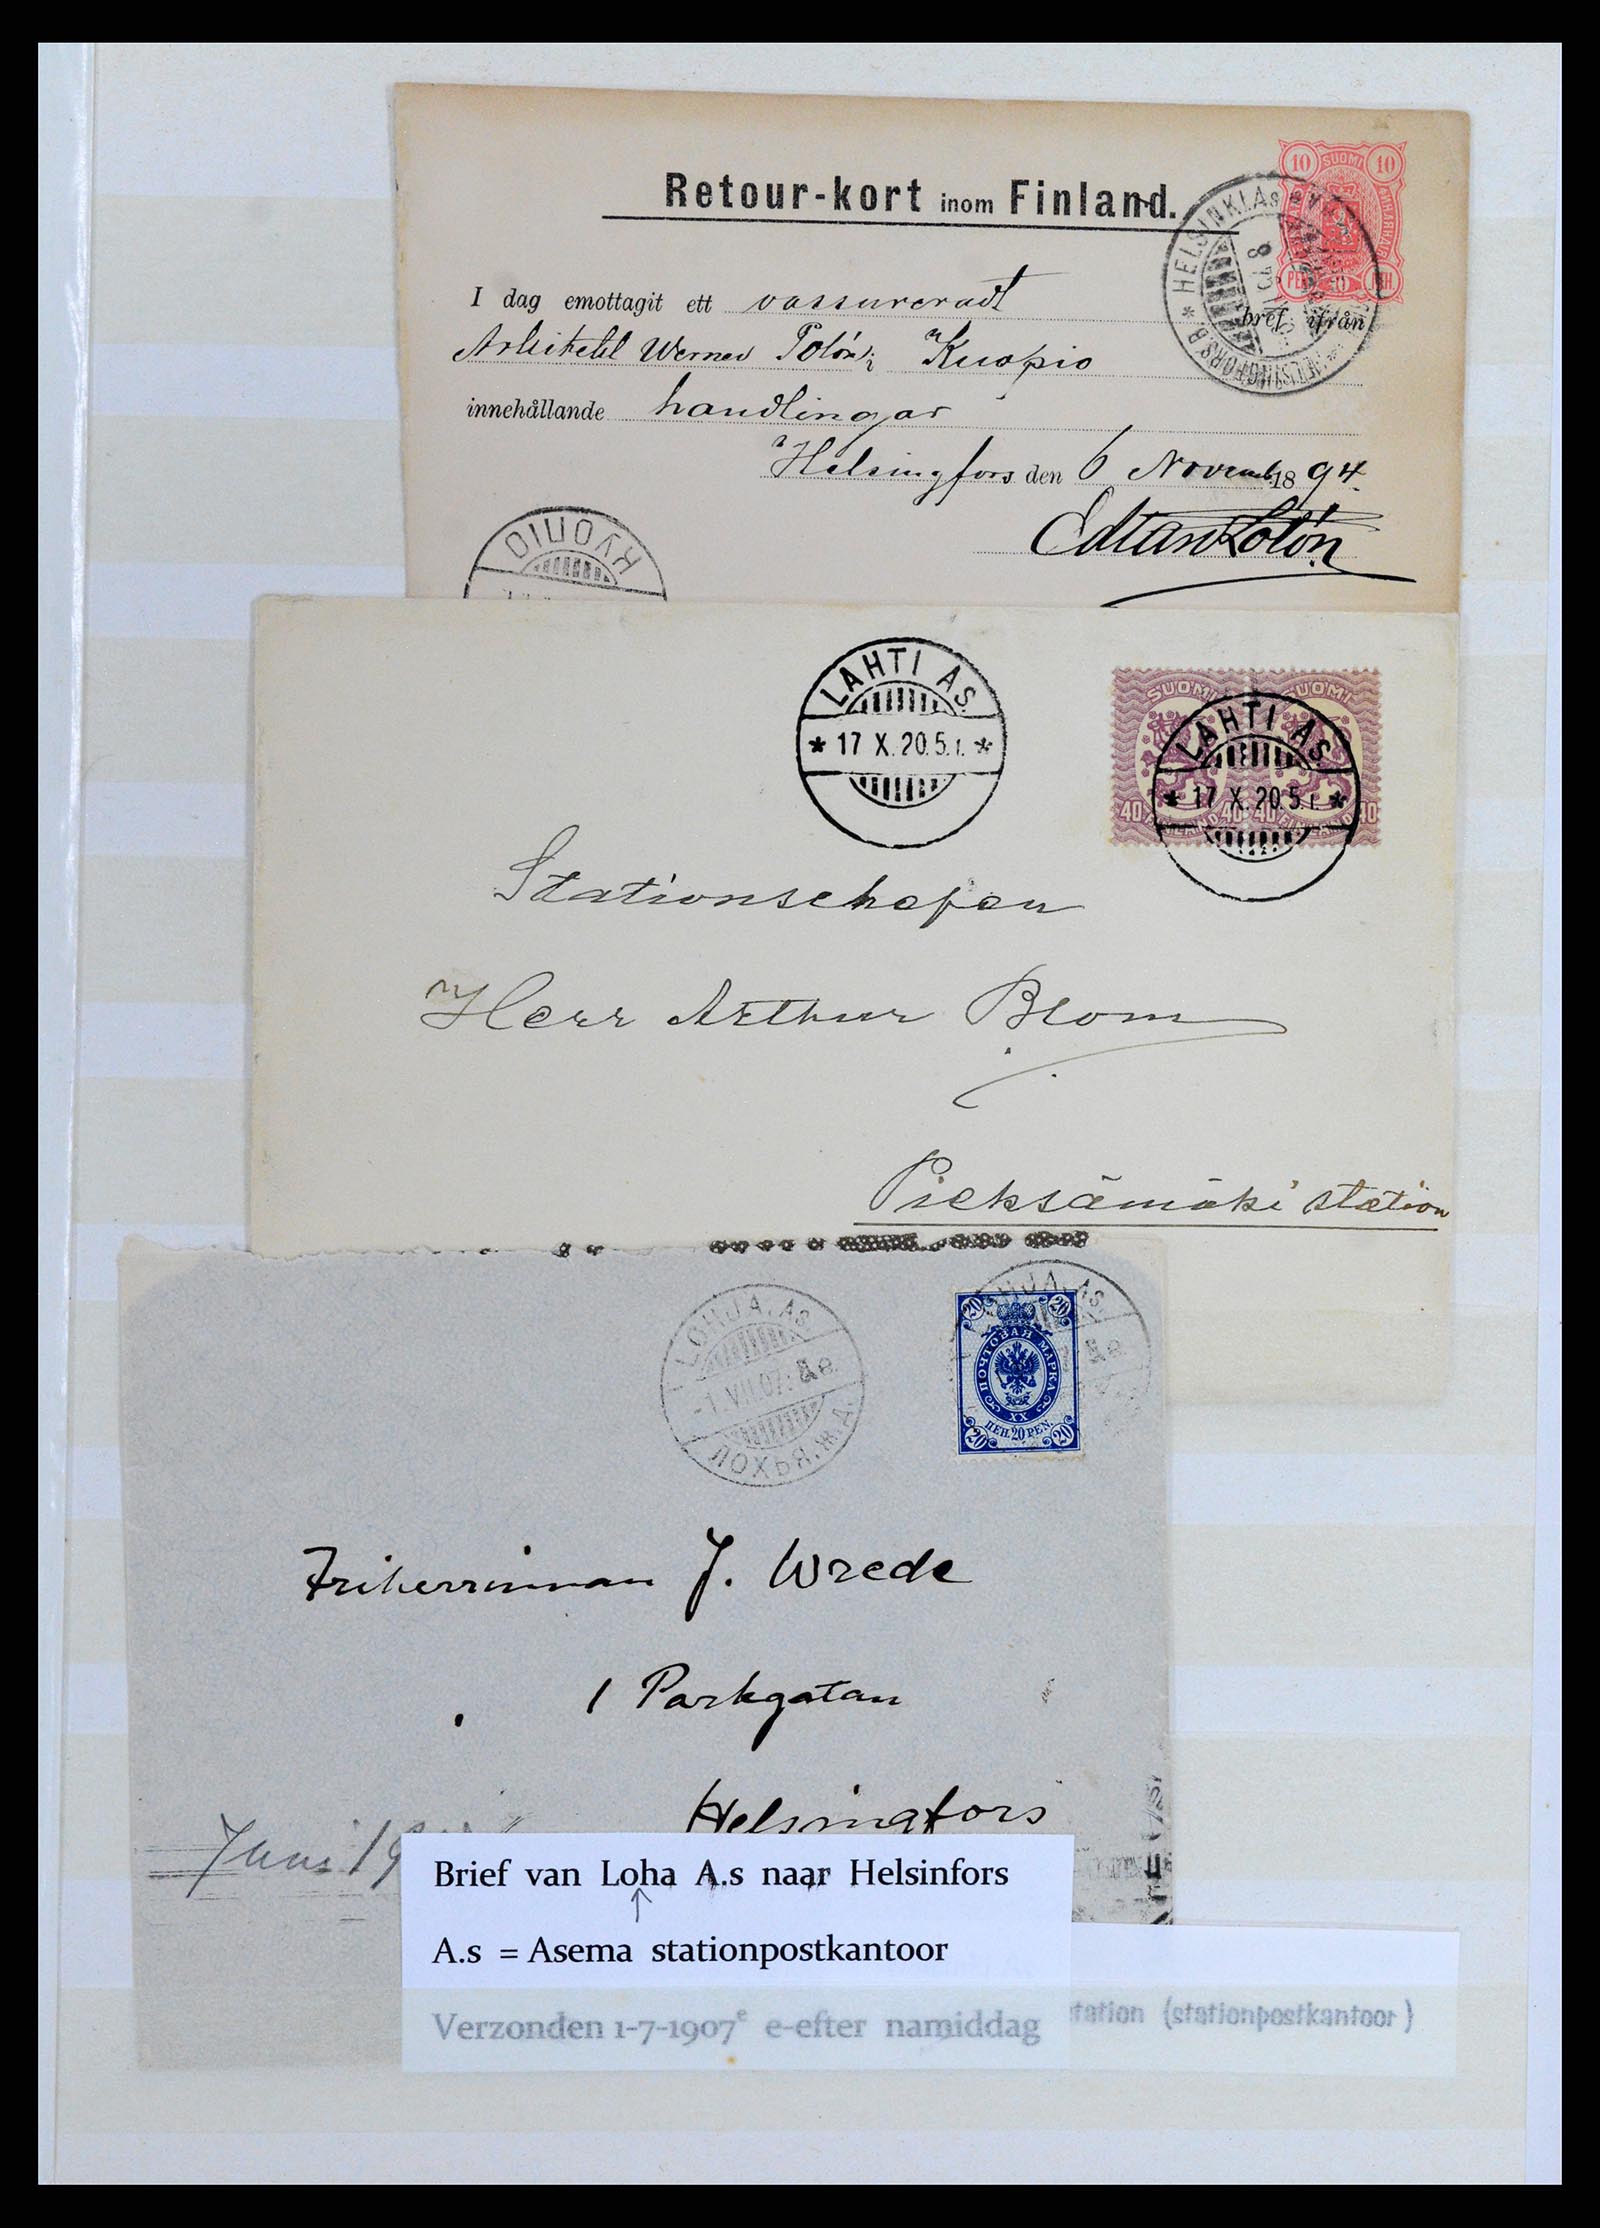 10 SUOMI 10
Retour-kort inom Finland.
HELSINKI.As
HELSINGFORS B
I dag emottagit ett vassureradt bref ifrån
Arkitekt Werner Polón i Kuopio
innehållande handlingar
Helsingfors den 6 Novemb. 1894.
KYOПIO
LAHTI AS.
* 17 X. 20. 5 i. *
SUOMI SUOMI
40 FINLAND 40 40 FINLAND 40
LAHTI AS.
* 17 X. 20. 5 i. *
Stationschefen
Herr Arthur Blom
Pieksämäki station
LOHJA. As.
-1.VII.07; 8 e.
ЛОХЬЯ.Ж.Д.
LOHJA. As.
20 20
ПОЧТОВАЯ МАРКА
XX
ПЕН. 20 PEN.
20 20
Friherrinnan J. Wrede
1 Parkgatan
Helsingfors
Juni 19
Brief van Loha A.s naar Helsinfors
↑
A.s = Asema stationpostkantoor
Verzonden 1-7-1907 e e-efter namiddag
station (stationpostkantoor)